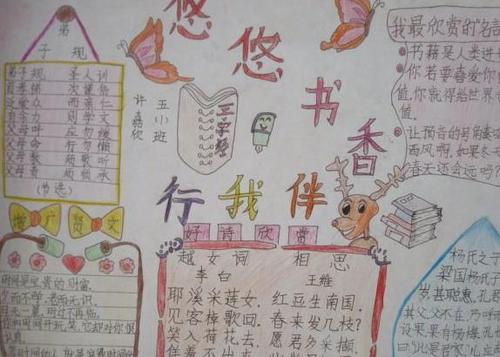 弟
子规
弟子规 圣人训
首孝悌 次谨信
泛爱众 而亲仁
有余力 则学文
父母呼 应勿缓
父母命 行勿懒
父母教 须敬听
父母责 须顺承
(节选)
许嘉欣
五小班
三字经
悠悠书香
伴我行
我最欣赏的"名言
书籍是人类进
你若要喜爱你
值,你就得给世界
值.
让预言的号角奏
西风啊,如果冬
春天还会远吗?
推广 贤文
好诗欣赏
越女词
李白
耶溪采莲女,
见客棹歌回.
笑入荷花去,
相思
王维
红豆生南国,
春来发几枝?
愿君多采撷,
杨氏之子
梁国杨氏子
岁,甚聪惠.孔
其父,父不在,乃呼
设果,果有杨梅.孔